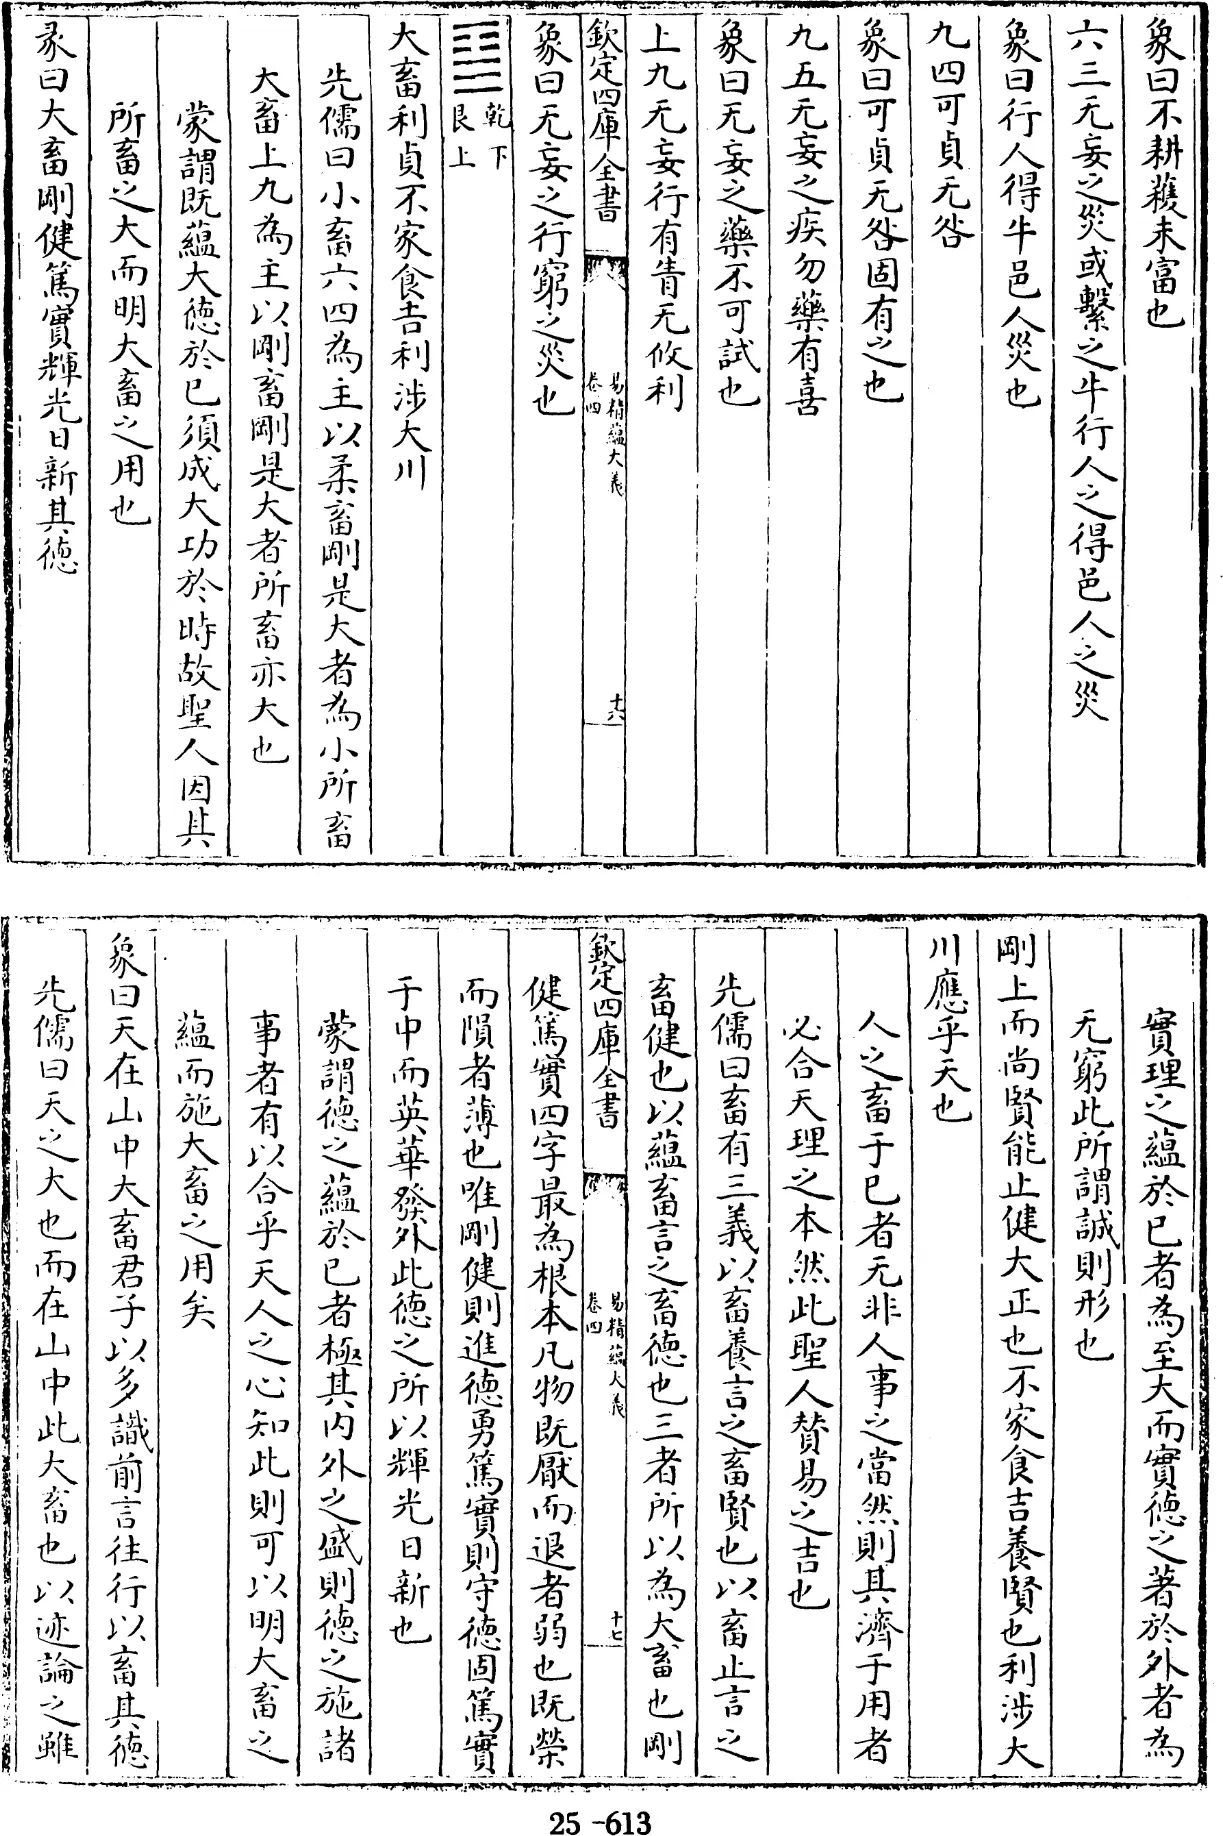 象曰不耕穫未富也
六三无妄之災或繫之牛行人之得邑人之災
象曰行人得牛邑人災也
九四可貞无咎
象曰可貞无咎固有之也
九五无妄之疾勿藥有喜
象曰无妄之藥不可試也
上九无妄行有眚无攸利
欽定四庫全書
易精蘊大義
卷四
十六
象曰无妄之行窮之災也
乾下
艮上
大畜利貞不家食吉利涉大川
先儒曰小畜六四為主以柔畜剛是大者為小所畜
大畜上九為主以剛畜剛是大者所畜亦大也
蒙謂既蘊大德於已須成大功於時故聖人因其
所畜之大而明大畜之用也
彖曰大畜剛健篤實輝光日新其德
實理之蘊於已者為至大而實德之著於外者為
无窮此所謂誠則形也
剛上而尚賢能止健大正也不家食吉養賢也利涉大
川應乎天也
人之畜于已者无非人事之當然則其濟于用者
必合天理之本然此聖人賛易之吉也
先儒曰畜有三義以畜養言之畜賢也以畜止言之
畜健也以蘊畜言之畜德也三者所以為大畜也剛
欽定四庫全書
易精蘊大義
卷四
十七
健篤實四字最為根本凡物既厭而退者弱也既榮
而隕者薄也唯剛健則進德勇篤實則守德固篤實
于中而英華發外此德之所以輝光日新也
蒙謂德之蘊於已者極其内外之盛則德之施諸
事者有以合乎天人之心知此則可以明大畜之
蘊而施大畜之用矣
象曰天在山中大畜君子以多識前言往行以畜其德
先儒曰天之大也而在山中此大畜也以迹論之雖
25-613